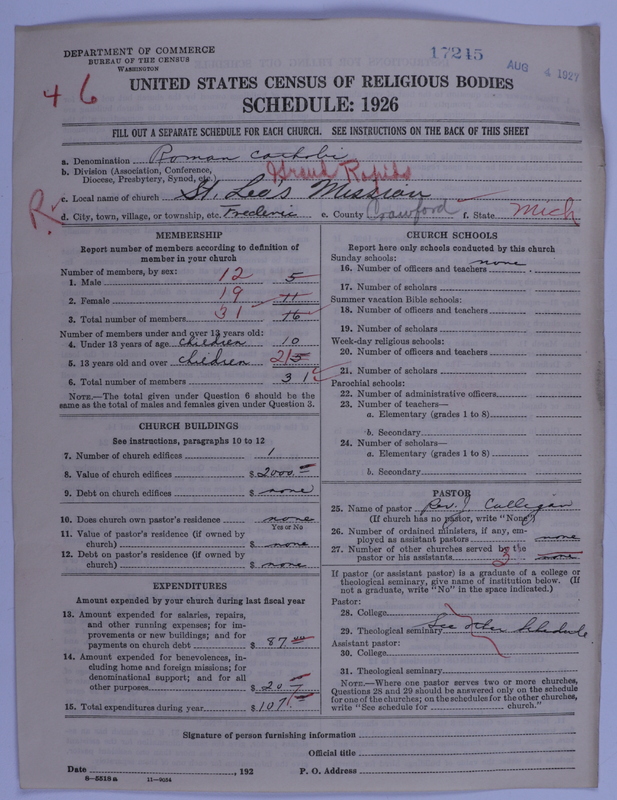 DEPARTMENT OF COMMERCE
BUREAU OF THE CENSUS
WASHINGTON
17245
AUG 4 1927
46
UNITED STATES CENSUS OF RELIGIOUS BODIES
SCHEDULE: 1926
FILL OUT A SEPARATE SCHEDULE FOR EACH CHURCH. SEE INSTRUCTIONS ON THE BACK OF THIS SHEET
a. Denomination Roman Catholic
b. Division (Association, Conference, Diocese, Presbytery, Synod, etc.) Grand Rapids
c. Local name of church St. Leo's Mission
R.
d. City, town, village, or township, etc. Frederic e. County Crawford f. State Mich
MEMBERSHIP
Report number of members according to definition of
member in your church
Number of members, by sex:
1. Male 12 5
2. Female 19 11
3. Total number of members 31 16
Number of members under and over 13 years old:
4. Under 13 years of age children 10
5. 13 years old and over children 21 5
6. Total number of members 31
NOTE.—The total given under Question 6 should be the
same as the total of males and females given under Question 3.
CHURCH BUILDINGS
See instructions, paragraphs 10 to 12
7. Number of church edifices 1
8. Value of church edifices $ 2000
9. Debt on church edifices $ none
10. Does church own pastor's residence none
Yes or No
11. Value of pastor's residence (if owned by
church) $ none
12. Debt on pastor's residence (if owned by
church) $ none
EXPENDITURES
Amount expended by your church during last fiscal year
13. Amount expended for salaries, repairs,
and other running expenses; for im-
provements or new buildings; and for
payments on church debt $ 87
14. Amount expended for benevolences, in-
cluding home and foreign missions; for
denominational support; and for all
other purposes $ 20
15. Total expenditures during year $ 107
CHURCH SCHOOLS
Report here only schools conducted by this church
Sunday schools:
16. Number of officers and teachers none
17. Number of scholars
Summer vacation Bible schools:
18. Number of officers and teachers
19. Number of scholars
Week-day religious schools:
20. Number of officers and teachers
21. Number of scholars
Parochial schools:
22. Number of administrative officers
23. Number of teachers—
a. Elementary (grades 1 to 8)
b. Secondary
24. Number of scholars—
a. Elementary (grades 1 to 8)
b. Secondary
PASTOR
25. Name of pastor Rev. J. Culligan
(If church has no pastor, write "None")
26. Number of ordained ministers, if any, em-
ployed as assistant pastors none
27. Number of other churches served by the
pastor or his assistants 3 none
If pastor (or assistant pastor) is a graduate of a college or
theological seminary, give name of institution below. (If
not a graduate, write "No" in the space indicated.)
Pastor:
28. College
29. Theological seminary See other Schedule
Assistant pastor:
30. College
31. Theological seminary
NOTE.—Where one pastor serves two or more churches,
Questions 28 and 29 should be answered only on the schedule
for one of the churches; on the schedules for the other churches,
write "See schedule for church."
Signature of person furnishing information
Official title
Date , 192 P. O. Address
8—5518a 11—9054